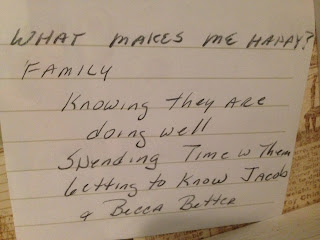 WHAT MAKES ME HAPPY?
FAMILY
KNOWING THEY ARE
doing well
SPENDING TIME W THEM
GETTING TO KNOW JACOB
& BECCA BETTER